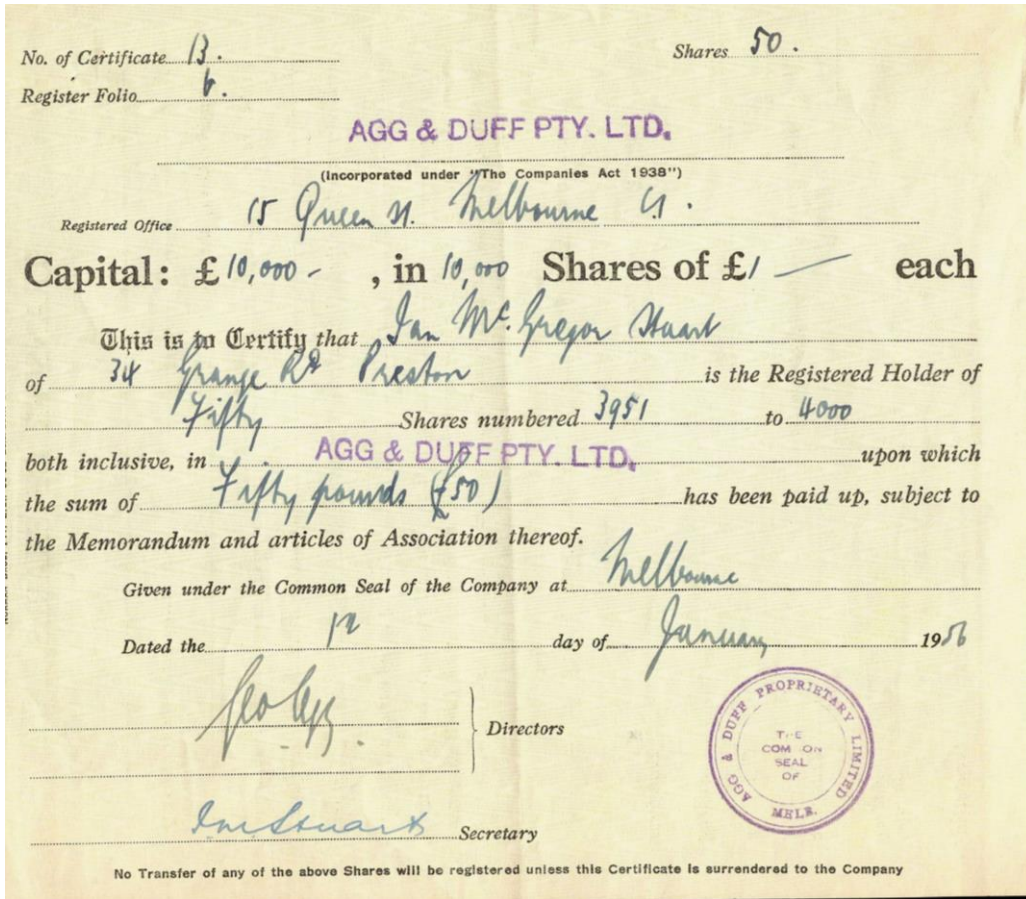 No. of Certificate 13. Shares 50.
Register Folio 6.
AGG & DUFF PTY. LTD.
(Incorporated under "The Companies Act 1938")
Registered Office 15 Queen St. Melbourne C1.
Capital: £10,000- , in 10,000 Shares of £1 — each
This is to Certify that Ian McGregor Stuart
of 34 Grange Rd Preston is the Registered Holder of
Fifty Shares numbered 3951 to 4000
both inclusive, in AGG & DUFF PTY. LTD. upon which
the sum of Fifty pounds (£50) has been paid up, subject to
the Memorandum and articles of Association thereof.
Given under the Common Seal of the Company at Melbourne
Dated the day of January 1956
Geo Agg
Directors
I M Stuart Secretary
AGG & DUFF PROPRIETARY LIMITED
THE
COMMON
SEAL
OF
MELB.
No Transfer of any of the above Shares will be registered unless this Certificate is surrendered to the Company